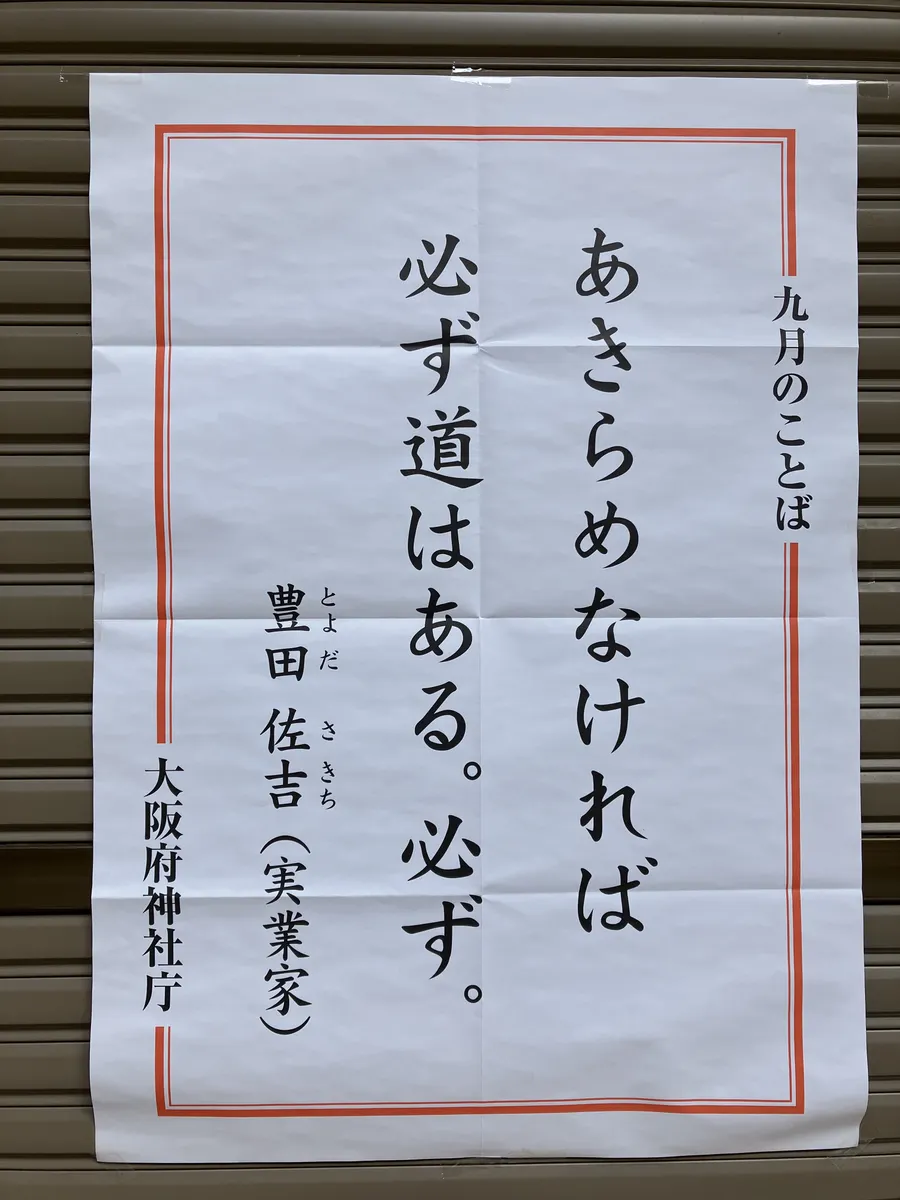 九月のことば
あきらめなければ
必ず道はある。必ず。
とよだ さきち
豊田 佐吉（実業家）
大阪府神社庁